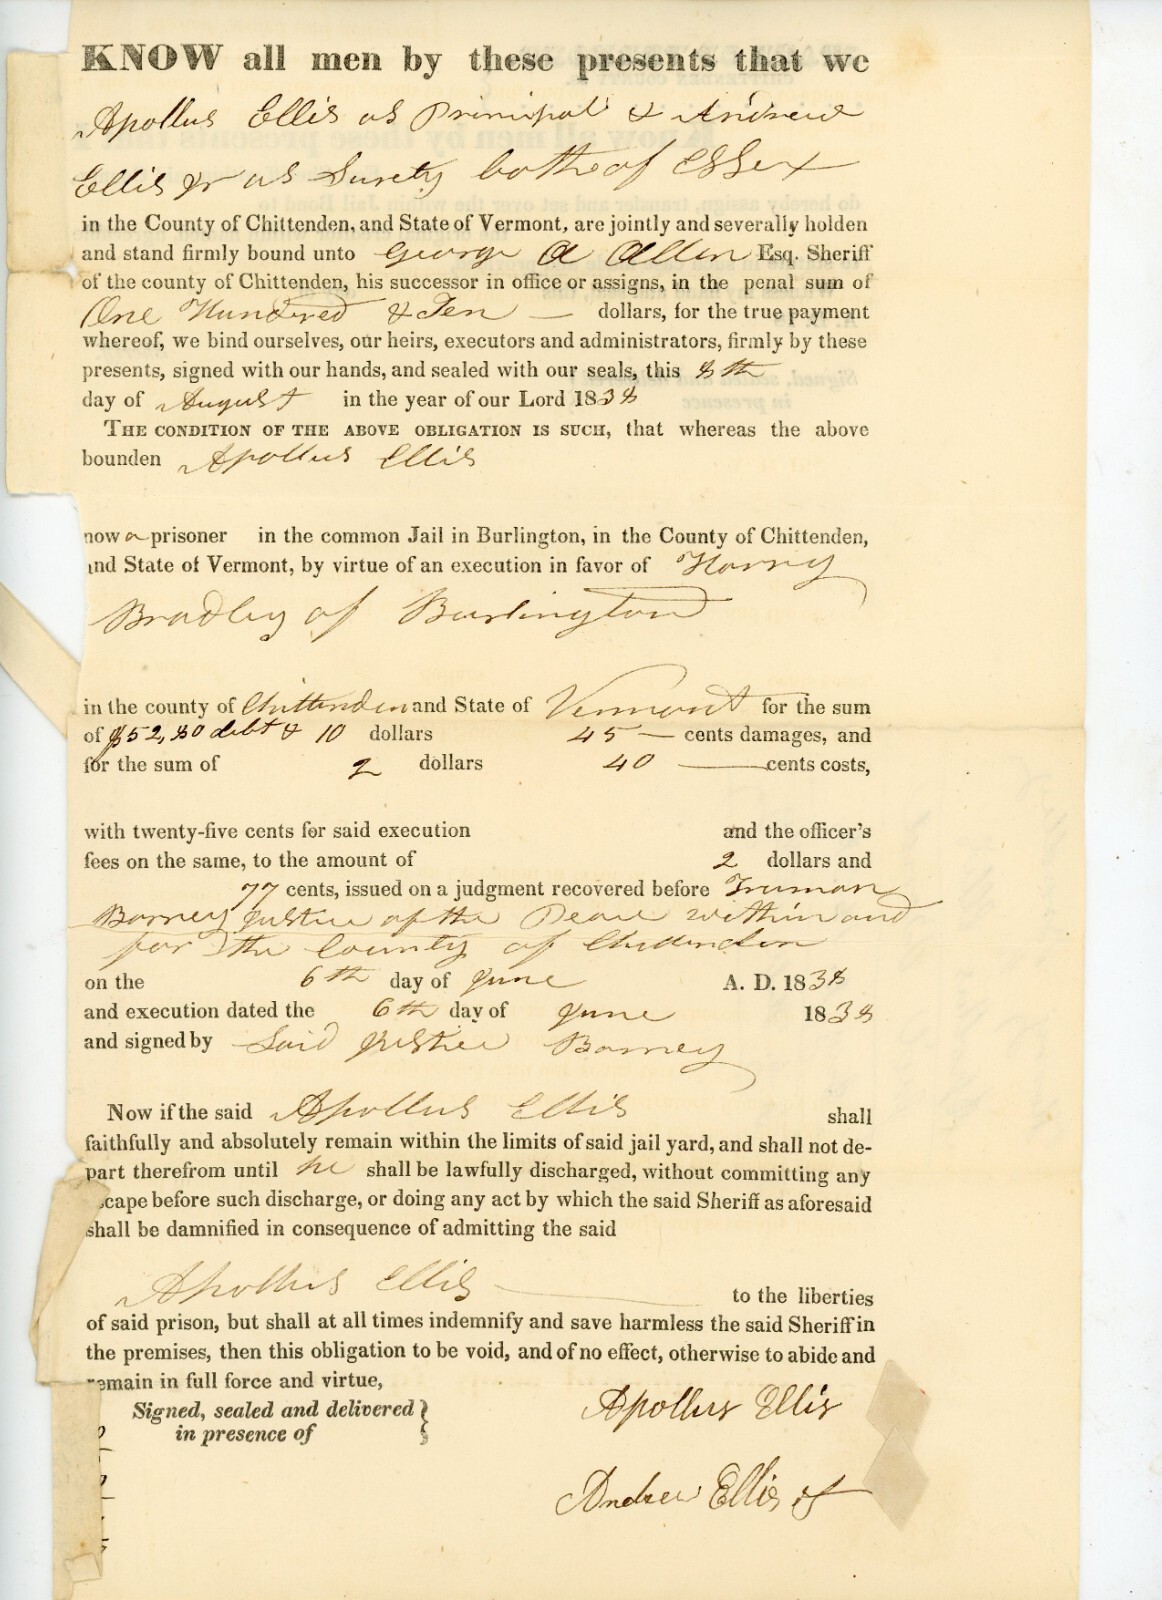 KNOW all men by these presents that we
Apollus Ellis as Principal & Andrew
Ellis Jr as Surety both of Essex
in the County of Chittenden, and State of Vermont, are jointly and severally holden
and stand firmly bound unto George A Allen Esq. Sheriff
of the county of Chittenden, his successor in office or assigns, in the penal sum of
One Hundred & Ten — dollars, for the true payment
whereof, we bind ourselves, our heirs, executors and administrators, firmly by these
presents, signed with our hands, and sealed with our seals, this 8th
day of August in the year of our Lord 1838
THE CONDITION OF THE ABOVE OBLIGATION IS SUCH, that whereas the above
bounden Apollus Ellis
now a prisoner in the common Jail in Burlington, in the County of Chittenden,
and State of Vermont, by virtue of an execution in favor of Harry
Bradley of Burlington
in the county of Chittenden and State of Vermont for the sum
of $52,80 debt & 10 dollars 45 — cents damages, and
for the sum of 2 dollars 40 — cents costs,
with twenty-five cents for said execution and the officer's
fees on the same, to the amount of 2 dollars and
77 cents, issued on a judgment recovered before Truman
Barney Justice of the Peace within and
for the County of Chittenden
on the 6th day of June A. D. 1838
and execution dated the 6th day of June 1838
and signed by Said Justice Barney
Now if the said Apollus Ellis shall
faithfully and absolutely remain within the limits of said jail yard, and shall not de-
part therefrom until he shall be lawfully discharged, without committing any
scape before such discharge, or doing any act by which the said Sheriff as aforesaid
shall be damnified in consequence of admitting the said
Apollus Ellis — to the liberties
of said prison, but shall at all times indemnify and save harmless the said Sheriff in
the premises, then this obligation to be void, and of no effect, otherwise to abide and
remain in full force and virtue,
Signed, sealed and delivered }
in presence of
Apollus Ellis
Andrew Ellis Jr